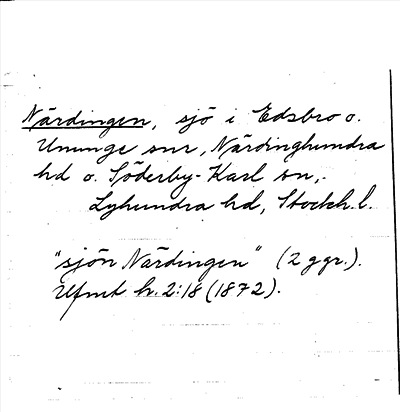 Närdingen, sjö i Edsbro o.
Ununge snr, Närdinghundra
hd o. Söderby-Karl sn,
Lyhundra hd, Stockh. l.
"sjön Närdingen" (2 ggr.).
Ufmt h. 2:18 (1872).